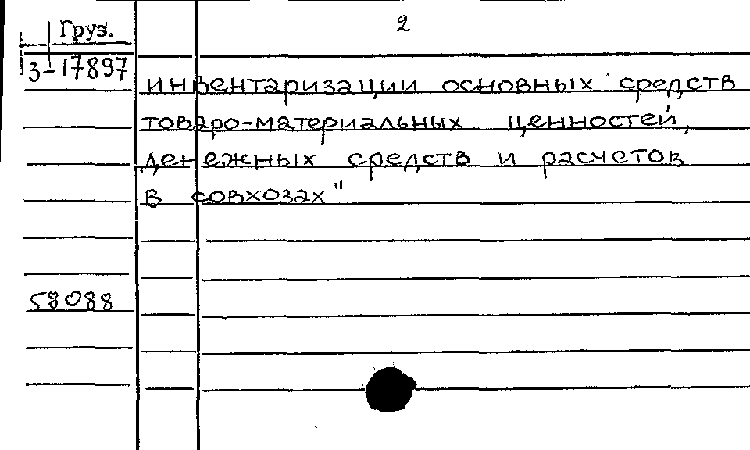 Груз.
2
3-17897
инвентаризации основных средств
товаро-материальных ценностей,
денежных средств и расчетов
в совхозах"
58088